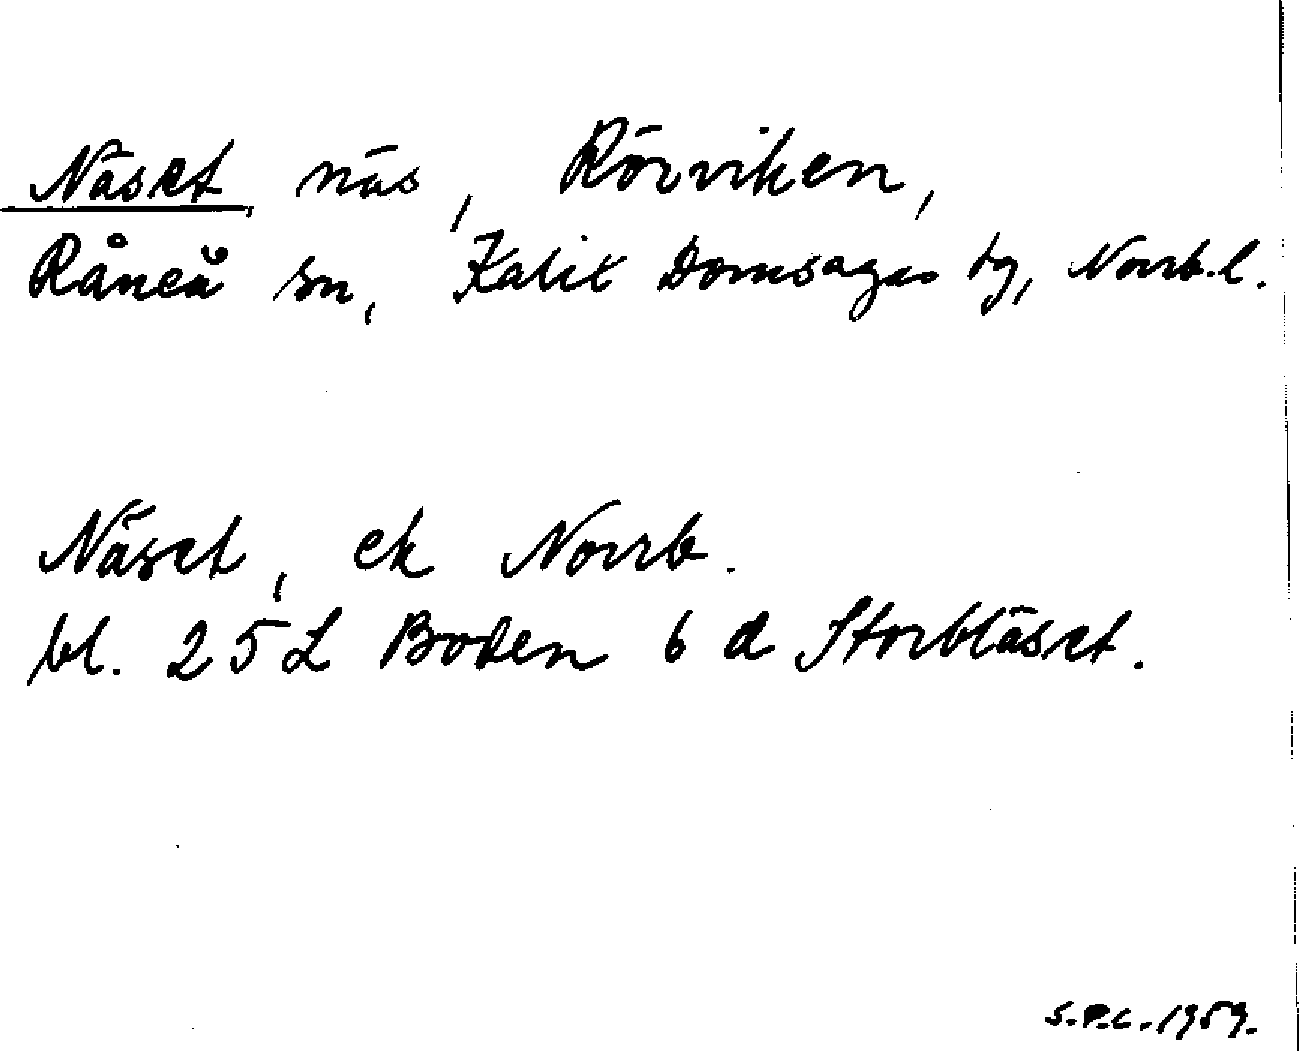 Näset, näs, Rörviken,
Råneå sn, Kalix Domsagas tg, Norrb.l.
Näset, ek Norrb.
bl. 25L Boden 6 d Storbläset.
S.P.C. 1959.